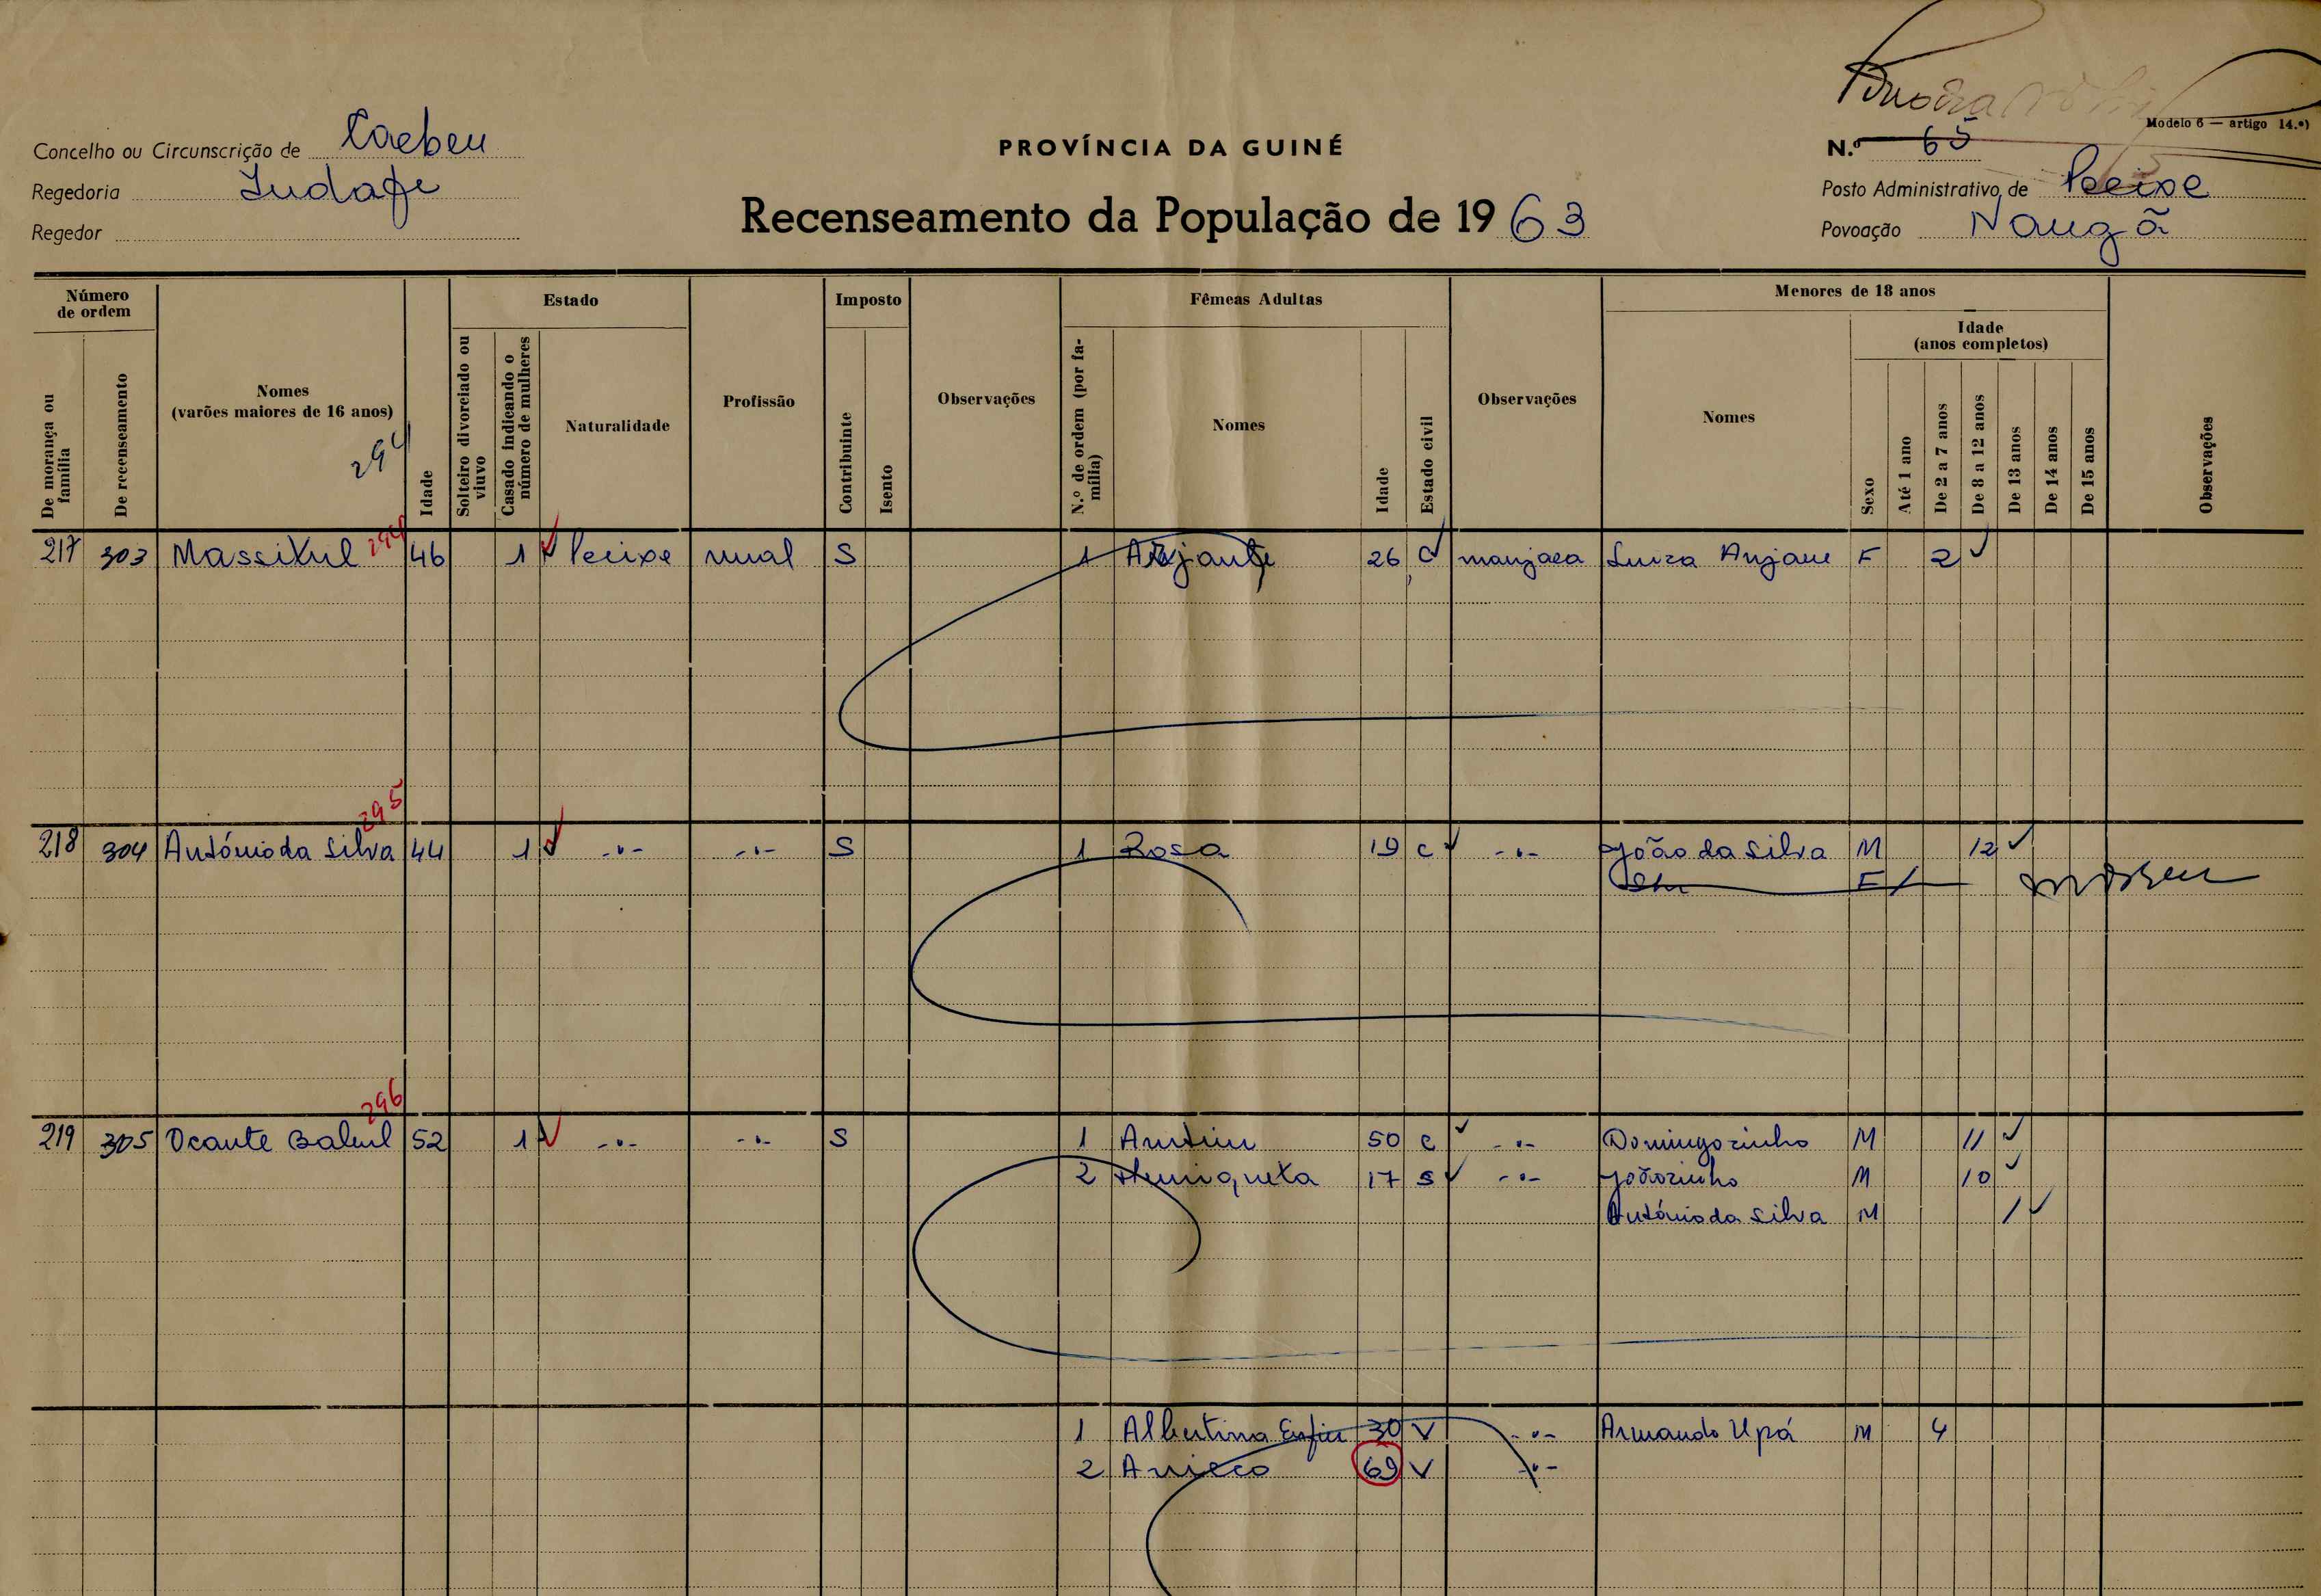 Modelo 6 — artigo 14.º)
Concelho ou Circunscrição de
PROVÍNCIA DA GUINÉ
N.º 65
Regedoria
Posto Administrativo de Pecixe
Regedor
Recenseamento da População de 1963
Povoação Naugã
Número de ordem
Estado
Imposto
Fêmeas Adultas
Menores de 18 anos
Idade
(anos completos)
De morança ou família
De recenseamento
Nomes
(varões maiores de 16 anos)
294
Idade
Solteiro divorciado ou viuvo
Casado indicando o número de mulheres
Naturalidade
Profissão
Contribuinte
Isento
Observações
N.º de ordem (por família)
Nomes
Idade
Estado civil
Observações
Nomes
Sexo
Até 1 ano
De 2 a 7 anos
De 8 a 12 anos
De 13 anos
De 14 anos
De 15 anos
Observações
217 303 Massikul 294 46 1 Pecixe rural S 1 26 C manjaca Luiza F 2
295
218 304 António da Silva 44 1 -"- -"- S 1 Rosa 19 C -"- João da Silva M 12
F
296
219 305 Ocante 52 1 -"- -"- S 1 50 C -"- Domingozinho M 11
2 Henriqueta 17 S -"- Joãozinho M 10
António da Silva M 1
1 Albertina 30 V -"- Armando Upá M 4
2 69 V -"-